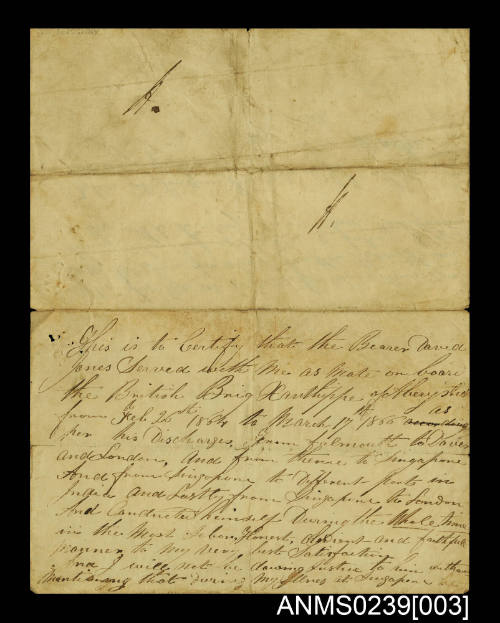 H.
H.
This is to Certify that the Bearer David
Jones Served with me as Mate on board
the British Brig Xanthippe of
from Feb 22 1854 to March 17th 185 as
per his Discharges, from Falmouth to
and London, and from thence to Singapore
And from Singapore to Different ports in
India And Lastly from Singapore to London
And Conducted himself During the Whole time
in the Most Sober, Honest, and faithfull
manner to My very best Satisfaction
And I will not be doing Justice to him without
Mentioning that during My Illness at Singapore
ANMS0239[003]